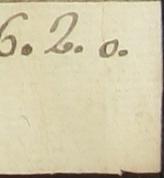 6. 2. 0.